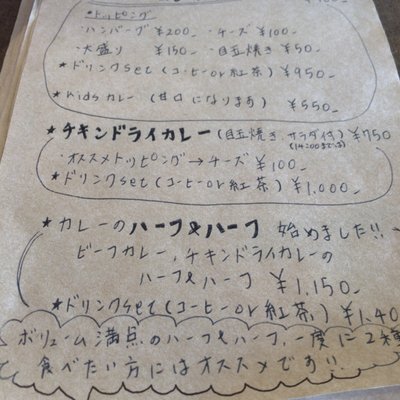 *トッピング
・ハンバーグ ¥200- ・チーズ ¥100-
・大盛り ¥150- ・目玉焼き ¥50-
★ドリンクset(コーヒーor紅茶) ¥950-
★kidsカレー (甘口になります) ¥550-
★チキンドライカレー (目玉焼き、サラダ付) ¥750
オススメトッピング→チーズ ¥100-
★ドリンクset(コーヒーor紅茶) ¥1,000-
★カレーのハーフ&ハーフ 始めました!!
ビーフカレー、チキンドライカレーの
ハーフ&ハーフ ¥1,150-
★ドリンクset(コーヒーor紅茶) ¥1,40
ボリューム満点のハーフ&ハーフ、一度に2種
食べたい方にはオススメです!!